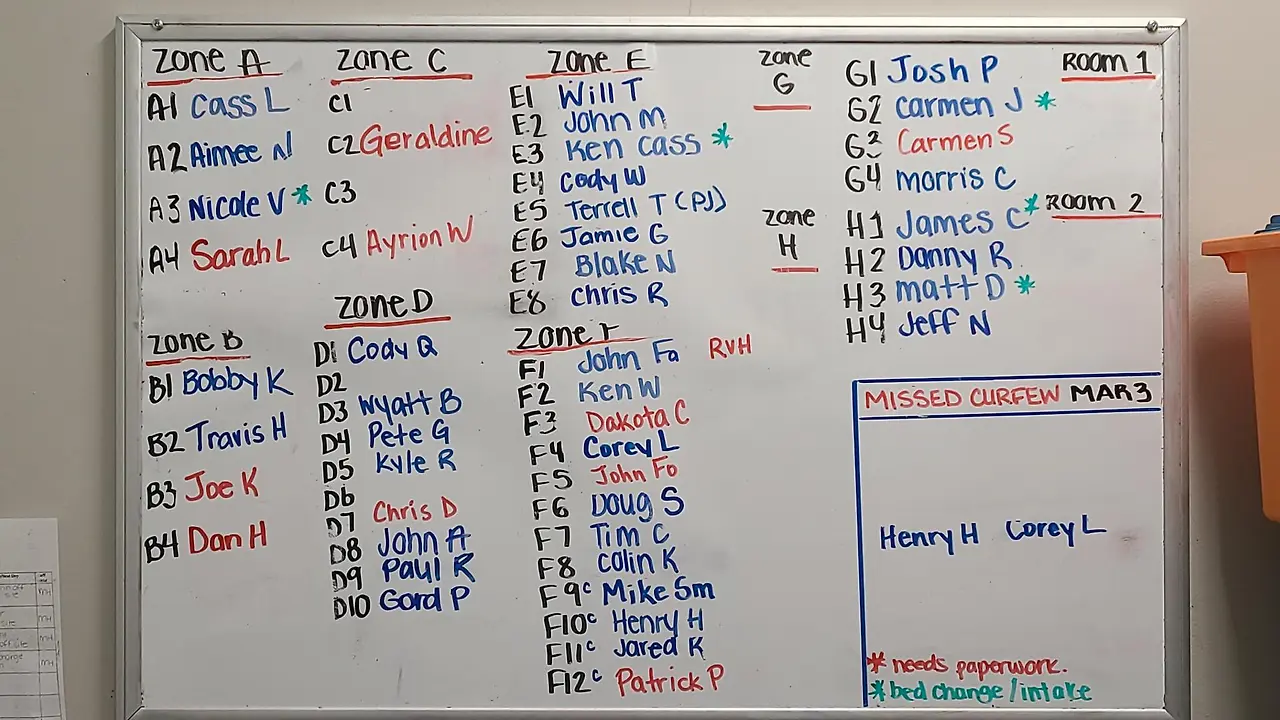 Zone A
A1 Cass L
A2 Aimee N
A3 Nicole V *
A4 Sarah L
Zone B
B1 Bobby K
B2 Travis H
B3 Joe K
B4 Dan H
Zone C
C1
C2 Geraldine
C3
C4 Ayrion W
Zone D
D1 Cody Q
D2
D3 Wyatt B
D4 Pete G
D5 Kyle R
D6
D7 Chris D
D8 John A
D9 Paul R
D10 Gord P
Zone E
E1 Will T
E2 John M
E3 Ken Cass *
E4 Cody W
E5 Terrell T (PJ)
E6 Jamie G
E7 Blake N
E8 Chris R
Zone F
F1 John Fa RVH
F2 Ken W
F3 Dakota C
F4 Corey L
F5 John Fo
F6 Doug S
F7 Tim C
F8 Colin K
F9c Mike Sm
F10c Henry H
F11c Jared K
F12c Patrick P
Zone
G
Room 1
G1 Josh P
G2 Carmen J *
G3 Carmen S
G4 Morris C
Zone
H
Room 2
H1 James C *
H2 Danny R
H3 Matt D *
H4 Jeff N
MISSED CURFEW MAR 3
Henry H Corey L
* needs paperwork.
* bed change / intake